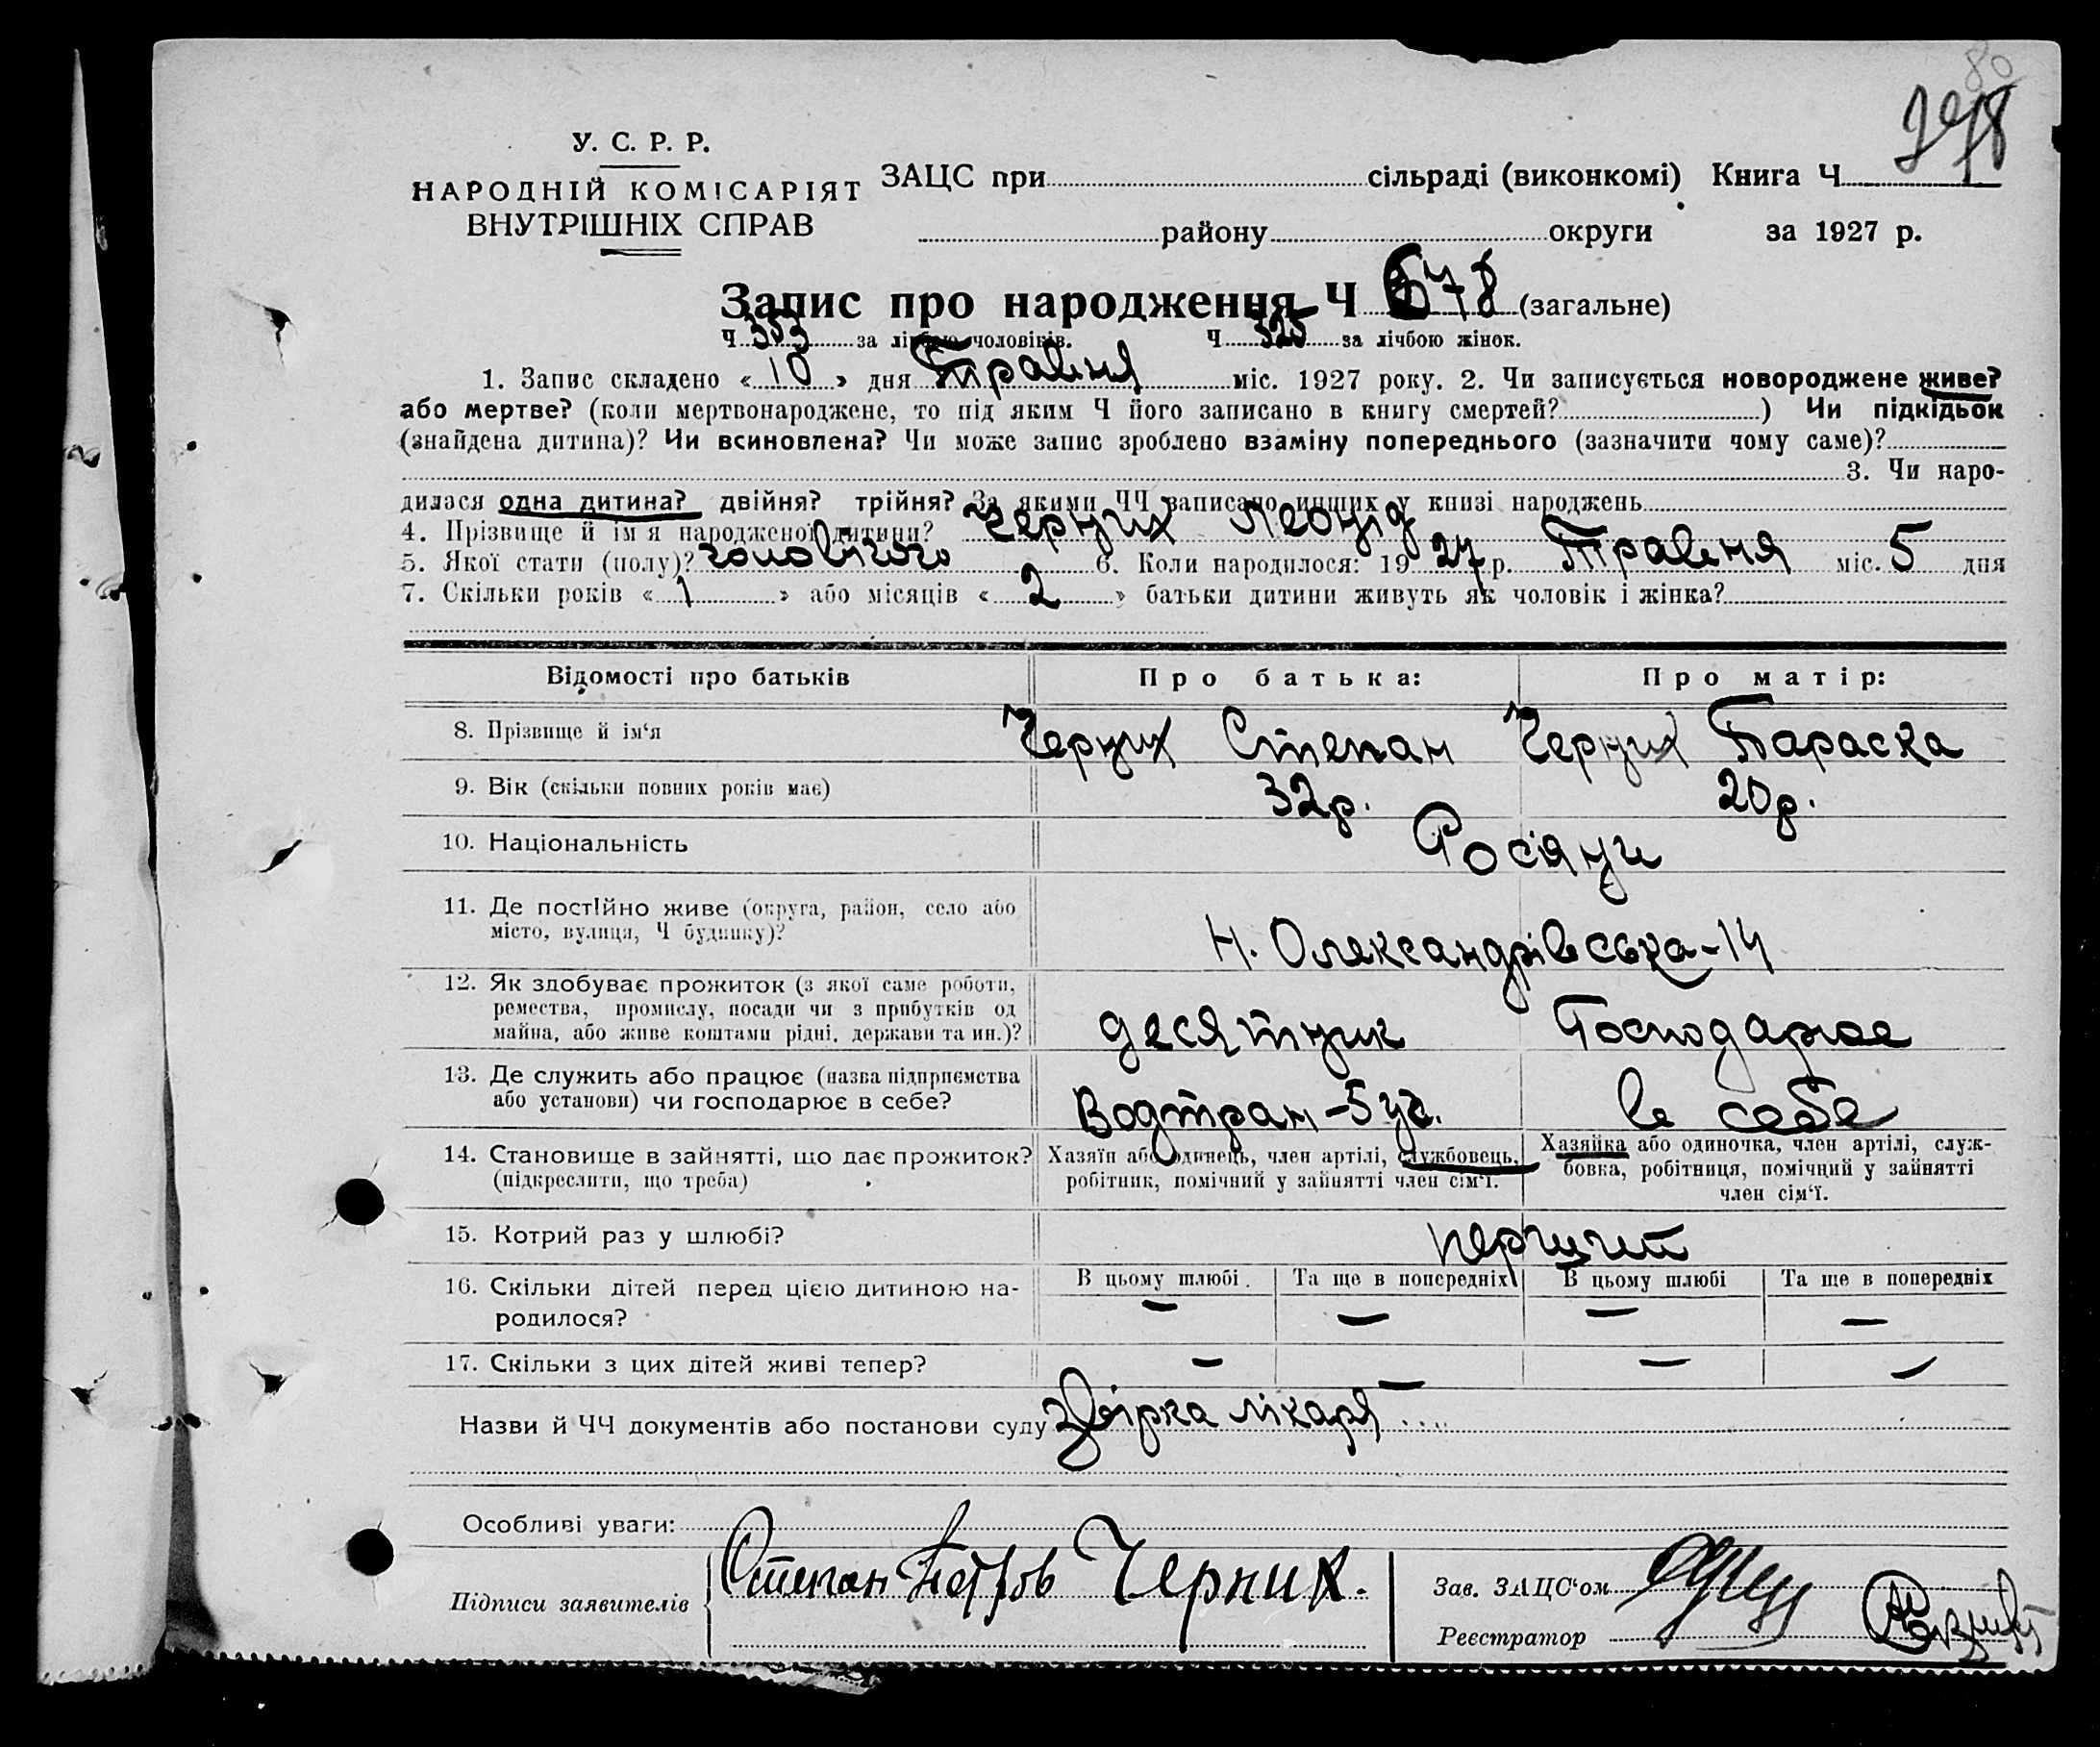 80
У. С. Р. Р.
НАРОДНІЙ КОМІСАРІЯТ
ВНУТРІШНІХ СПРАВ
ЗАЦС при сільраді (виконкомі) Книга Ч
району округи за 1927 р.
Запис про народження Ч 678 (загальне)
Ч 353 за лічбою чоловіків. Ч 325 за лічбою жінок.
1. Запис складено « 10 » дня Травня міс. 1927 року. 2. Чи записується новороджене живе?
або мертве? (коли мертвонароджене, то під яким Ч його записано в книгу смертей? ) Чи підкідьок
(знайдена дитина)? Чи всиновлена? Чи може запис зроблено взаміну попереднього (зазначити чому саме)?
3. Чи наро-
дилася одна дитина? двійня? трійня? За якими ЧЧ записано инших у книзі народжень
4. Прізвище й ім'я народженої дитини? Черних Леонід
5. Якої стати (полу)? чоловічого 6. Коли народилося: 19 27 р. Травня міс. 5 дня
7. Скільки років « 1 » або місяців « 2 » батьки дитини живуть як чоловік і жінка?
Відомості про батьків Про батька: Про матір:
8. Прізвище й ім'я Черних Степан Черних Параска
9. Вік (скільки повних років має) 32р. 20р.
10. Національність Росіяни
11. Де постійно живе (округа, район, село або
місто, вулиця, Ч будинку)? Н. Олександрівська-14
12. Як здобуває прожиток (з якої саме роботи,
ремества, промислу, посади чи з прибутків од
майна, або живе коштами рідні, держави та ин.)? десятник Господарює
13. Де служить або працює (назва підприємства
або установи) чи господарює в себе? Водтран-5 уч. в себе
14. Становище в зайнятті, що дає прожиток?
(підкреслити, що треба)
Хазяїн або одинець, член артілі, службовець,
робітник, помічний у зайнятті член сім'ї.
Хазяйка або одиночка, член артілі, служ-
бовка, робітниця, помічний у зайнятті
член сім'ї.
15. Котрий раз у шлюбі? перший
16. Скільки дітей перед цією дитиною на-
родилося?
В цьому шлюбі Та ще в попередніх В цьому шлюбі Та ще в попередніх
— — — —
17. Скільки з цих дітей живі тепер? — — — —
Назви й ЧЧ документів або постанови суду звірка лікаря
Особливі уваги:
Підписи заявителів Степан Петров Черних.
Зав. ЗАЦС'ом
Реєстратор